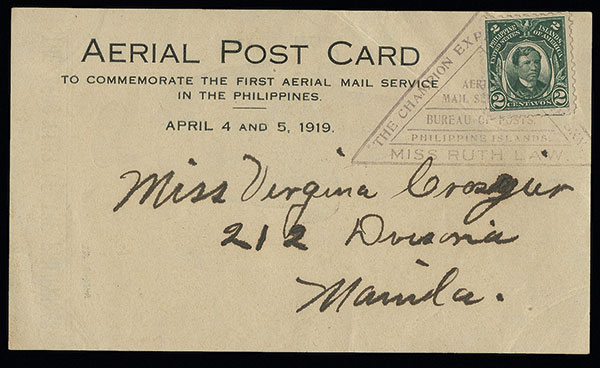 AERIAL POST CARD
TO COMMEMORATE THE FIRST AERIAL MAIL SERVICE
IN THE PHILIPPINES.
APRIL 4 AND 5, 1919.
THE CHAMPION
AERI
MAIL SE
BUREAU OF POSTS.
PHILIPPINE ISLANDS.
MISS RUTH LAW
2 PHILIPPINE ISLANDS 2
UNITED STATES OF AMERICA
2 CENTAVOS 2
Miss Vergina
212
Manila.